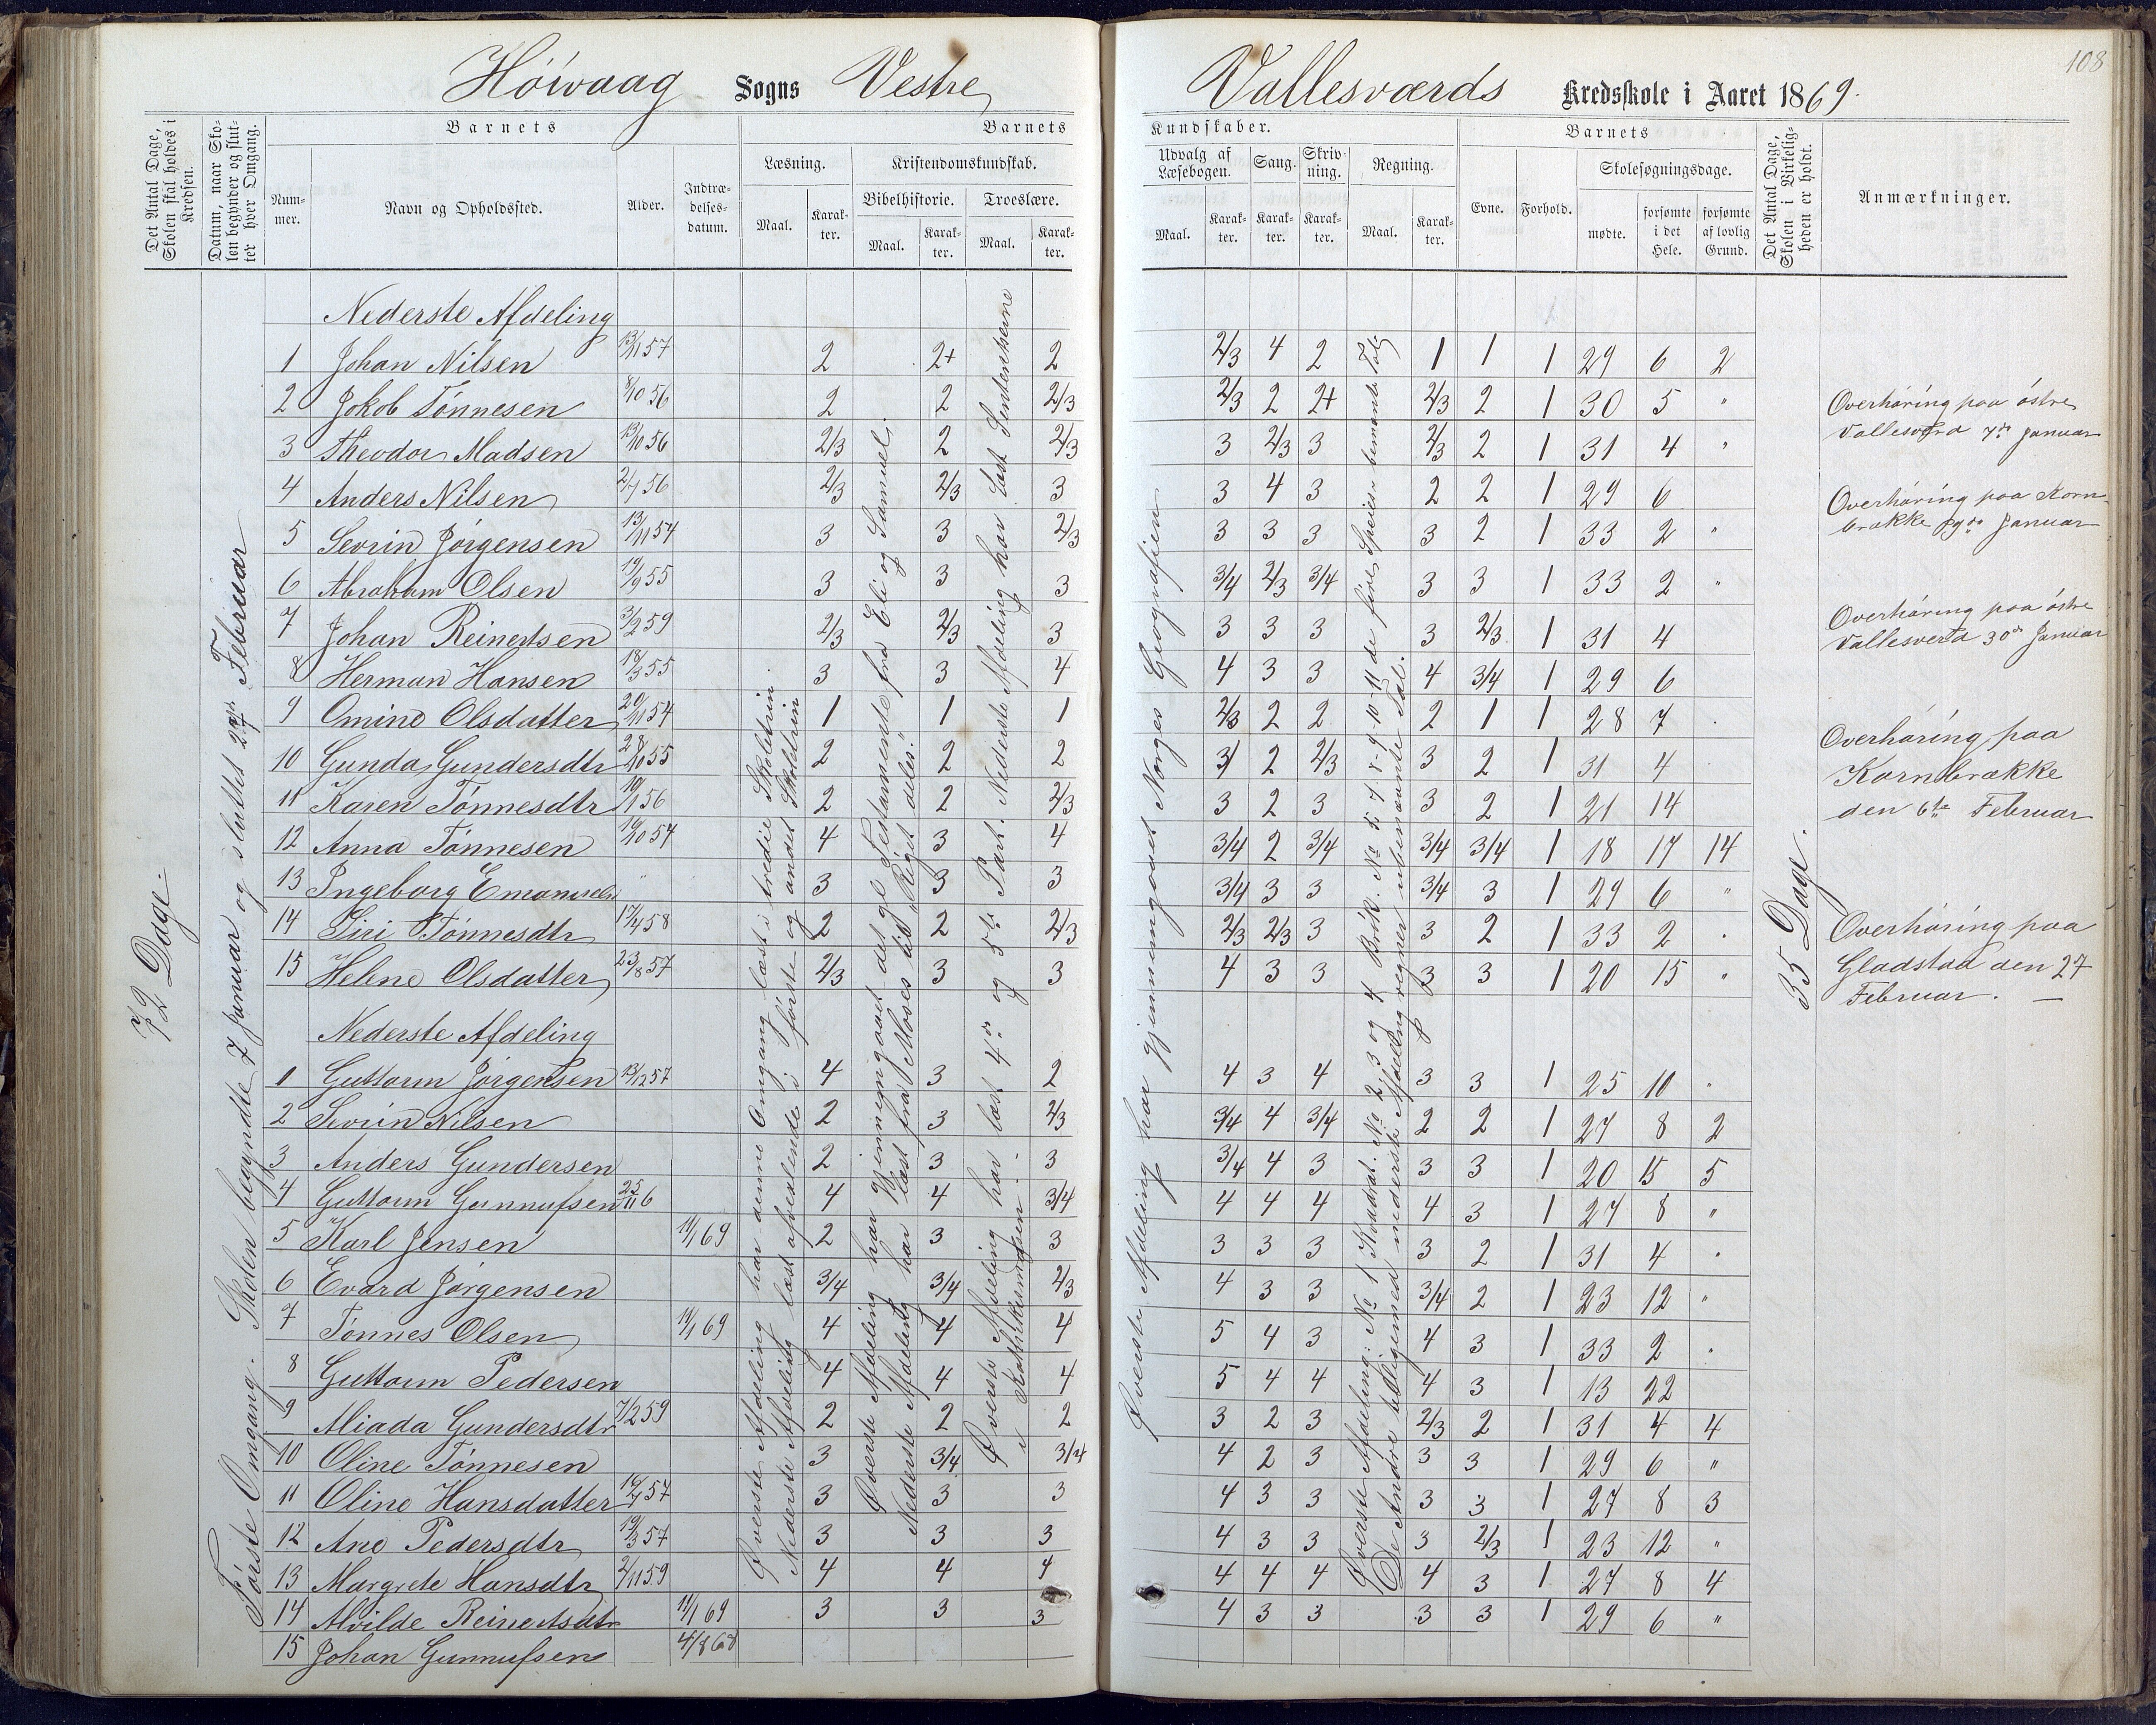 108
Høivaag Sogns Vestre Vallesværds Kredsskole i Aaret 1869.
Det Antal Dage, Skolen skal holdes i Kredsen.
Datum, naar Skolen begynder og slutter hver Omgang.
Barnets
Nummer.
Navn og Opholdssted.
Alder.
Indtrædelses-datum.
Barnets Kundskaber.
Læsning.
Maal.
Karakter.
Kristendomskundskab.
Bibelhistorie.
Maal.
Karakter.
Troeslære.
Maal.
Karakter.
Udvalg af Læsebogen.
Maal.
Karakter.
Sang.
Karakter.
Skrivning.
Karakter.
Regning.
Maal.
Karakter.
Barnets
Evne.
Forhold.
Skolesøgningsdage.
mødte.
forsømte i det Hele.
forsømte af lovlig Grund.
Det Antal Dage, Skolen i Virkeligheden er holdt.
Anmærkninger.
72 Dage.
Første Omgang. Skolen begyndte 7 Januar og sluttet 27de Februar
Nederste Afdeling
1 Johan Nilsen 13/11 57 2 2+ 2 2/3 4 2 1 1 1 29 6 2
2 Jokob Tønnesen 8/10 56 2 2 2/3 2/3 2 2+ 2/3 2 1 30 5 "
3 Theodor Madsen 13/10 56 2/3 2 2/3 3 2/3 3 2/3 2 1 31 4 "
4 Anders Nilsen 2/7 56 2/3 2/3 3 3 4 3 2 2 1 29 6
5 Sevrin Jørgensen 13/11 54 3 3 2/3 3 3 3 3 2 1 33 2 "
6 Abraham Olsen 19/9 55 3 3 3 3/4 2/3 3/4 3 3 1 33 2 "
7 Johan Reinertsen 3/2 59 2/3 2/3 3 3 3 3 3 2/3 1 31 4
8 Herman Hansen 18/3 55 3 3 4 4 3 3 4 3/4 1 29 6
9 Omine Olsdatter 20/11 54 1 1 1 2/3 2 2 2 1 1 28 7 .
10 Gunda Gundersdtr 28/10 55 2 2 2 3 2 2/3 3 2 1 31 4
11 Karen Tønnesdtr 19/1 56 2 2 2/3 3 2 3 3 2 1 21 14
12 Anna Tønnesen 16/10 54 4 3 4 3/4 2 3/4 3/4 3/4 1 18 17 14
13 Ingeborg " 3 3 3 3/4 3 3 3/4 3 1 29 6 "
14 Siri Tønnesdtr 17/4 58 2 2 2/3 2/3 2/3 3 3 2 1 33 2 .
15 Helene Olsdatter 23/8 57 2/3 3 3 4 3 3 3 3 1 20 15 "
Nederste Afdeling
1 Guttorm Jørgensen 13/12 57 4 3 2 4 3 4 3 3 1 25 10 "
2 Sevrin Nilsen 2 3 2/3 3/4 4 3/4 2 2 1 27 8 2
3 Anders Gundersen 2 3 3 3/4 4 3 3 3 1 20 15 5
4 Guttorm Gunnufsen 25/11 6 4 4 3/4 4 4 4 4 3 1 27 8 "
5 Karl Jensen 11/1 69 2 3 3 3 3 3 3 2 1 31 4 .
6 Evard Jørgensen 3/4 3/4 2/3 4 3 3 3/4 2 1 23 12 "
7 Tønnes Olsen 11/1 69 4 4 4 5 4 3 4 3 1 33 2 .
8 Guttorm Pedersen 4 4 4 5 4 4 4 3 1 13 22
9 Aliada Gundersdtr 7/2 59 2 2 2 3 2 3 2/3 2 1 31 4 4
10 Oline Tønnesen 3 3/4 3/4 4 2 3 3 3 1 29 6 "
11 Oline Hansdatter 16/7 57 3 3 3 4 3 3 3 3 1 27 8 3
12 Ane Pedersdtr 19/3 57 3 3 3 4 3 3 3 2/3 1 23 12 "
13 Margrete Hansdtr 2/11 59 4 4 4 4 4 4 4 3 1 27 8 4
14 Alvilde Reinertsdtr 11/1 69 3 3 3 4 3 3 3 3 1 29 6 "
15 Johan Gunnufsen 4/8 68
Øverste Afdeling har denne Omgang læst i tredie Skoletrin
Nederste Afdeling læst afvexlende i første og andet Skoletrin
Øverste Afdeling har gjennemgaaet det gle Testamente fra Eli og Samuel.
Nederste Afdeling har læst fra Moses til "Riget deles."
Øverste Afdeling har læst 4de og 5te Part. Nederste Afdeling har læst Sentenserne
i Kathekismusen.
Øverste Afdeling har gjennemgaaet Norges Geografien
Øverste Afdeling: No 1 Kvadrat. No 2, 3 og 4 Brøk. No 5. 7. 8-9-10-11 de fire Speisr benævnte Tal
De Andre tilligemed nederste Afdeling regner ubenævnte Tal.
35 Dage.
Overhøring paa østre
Vallesverd 7de Januar
Overhøring paa Korn-
brække 19de Januar
Overhøring paa østre
Vallesverd 30de Januar
Overhøring paa
Kornbrække
den 6te Februar
Overhøring paa
Gladstad den 27
Februar. —